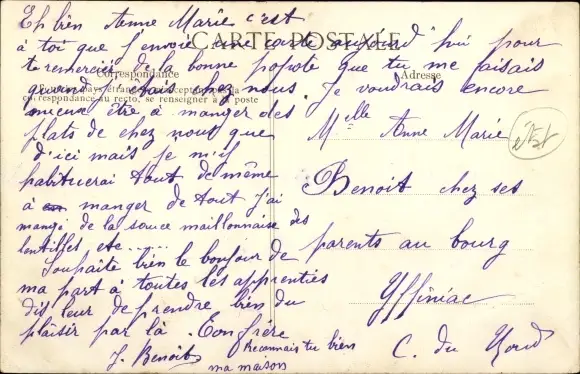 Eh bien Anne Marie c'est
à toi que j'envoie une carte aujourd'hui pour
te remercier de la bonne popote que tu me faisais
quand j'étais chez nous. Je voudrais encore
mieux être à manger des
plats de chez nous que
d'ici mais je m'y
habituerai tout de même
à manger de tout j'ai
mangé de la souce maillonnaise des
lentilles etc.....
Souhaite bien le bonjour de
ma part à toutes les apprenties
dis leur de prendre bien du
plaisir par là. Ton frère
J. Benoit
Reconnais tu bien
ma maison
CARTE POSTALE
Correspondance
Adresse
corespondance au recto, se renseigner à la poste
Melle Anne Marie
Benoit chez ses
parents au bourg
Yffiniac
C. du Nord